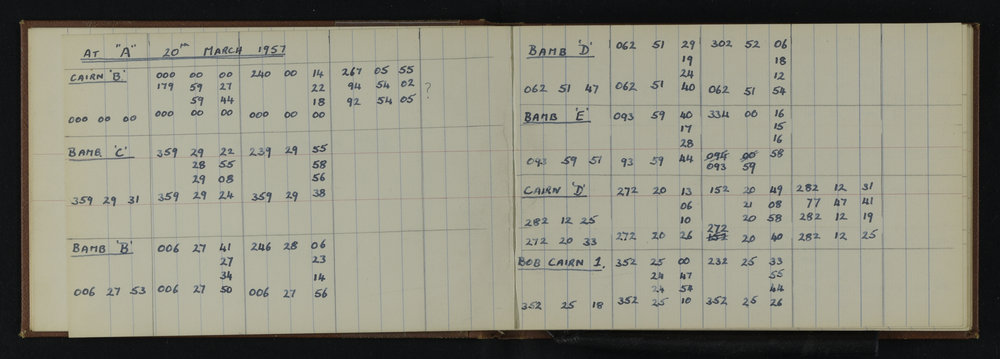 AT "A" 20th MARCH 1957
CAIRN 'B' 000 00 00 240 00 14 267 05 55
179 59 27 22 94 54 02 ?
59 44 18 92 54 05
000 00 00 000 00 00 000 00 00
BAMB 'C' 359 29 22 239 29 55
28 55 58
29 08 56
359 29 31 359 29 24 359 29 38
BAMB 'B' 006 27 41 246 28 06
27 23
34 14
006 27 53 006 27 50 006 27 56
BAMB 'D' 062 51 29 302 52 06
19 18
24 12
062 51 47 062 51 40 062 51 54
BAMB 'E' 093 59 40 334 00 16
17 15
28 16
094 00 58
093 59 51 93 59 44 093 59
CAIRN 'D' 272 20 13 152 20 49 282 12 31
06 21 08 77 47 41
282 12 25 10 20 58 282 12 19
272
272 20 33 272 20 26 152 20 40 282 12 25
BOB CAIRN 1. 352 25 00 232 25 33
24 47 55
24 54 44
352 25 18 352 25 10 352 25 26